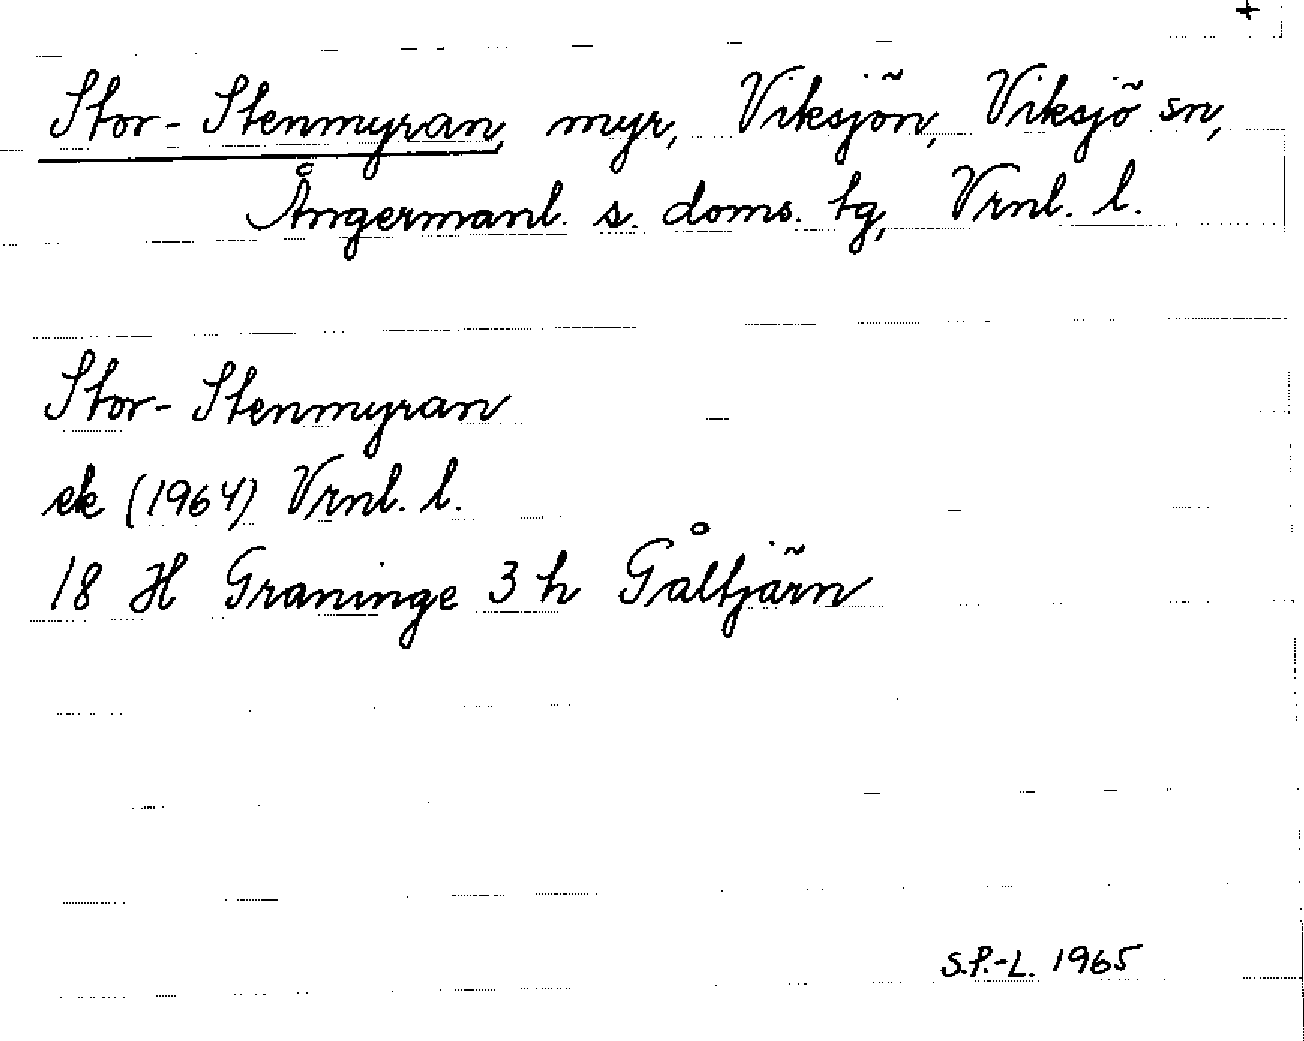 +
Stor-Stenmyran, myr, Viksjön, Viksjö sn,
Ångermanl. s. doms. tg, Vrnl. l.
Stor-Stenmyran
ek (1964) Vrnl. l.
18 H Graninge 3 h Gåltjärn
S.P.-L. 1965